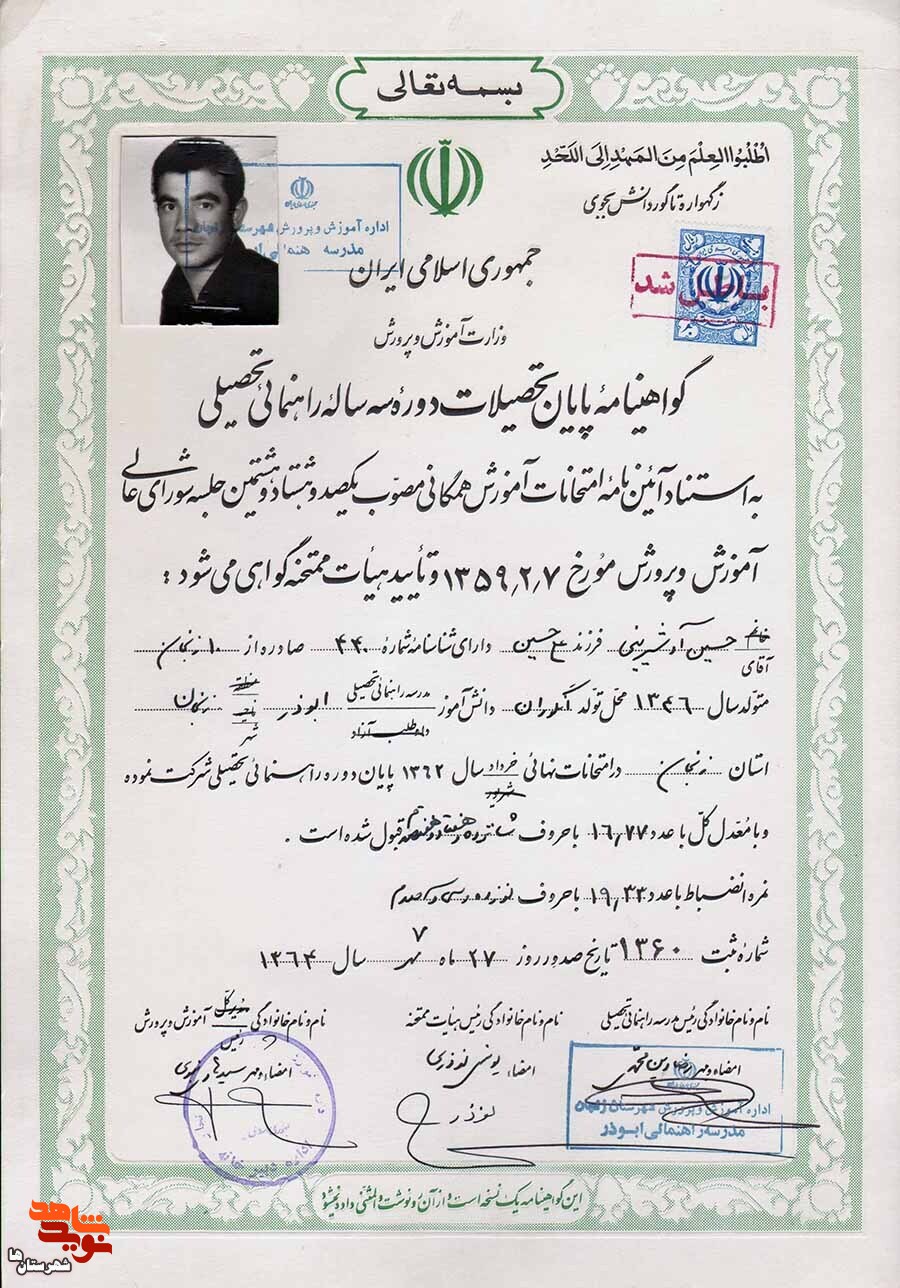 بسمه تعالی
اُطْلُبُوا العِلْمَ مِنَ المَهْدِ اِلَی اللَّحَدِ
زگهواره تا گور دانش بجوی
اداره آموزش و پرورش شهرستان زنجان
مدرسه راهنمائی
باطل شد
جمهوری اسلامی ایران
وزارت آموزش و پرورش
گواهینامهٔ پایان تحصیلات دورهٔ سه سالهٔ راهنمائی تحصیلی
به استناد آئین نامهٔ امتحانات آموزش همگانی مصوّب یکصد و هشتاد و هشتمین جلسه شورای عالی
آموزش و پرورش مورخ ۱۳۵۹٫۲٫۷ و تأیید هیأت ممتحنه گواهی می شود :
خانم
آقای حسین فرزند حسین دارای شناسنامه شماره ۴۴۰ صادره از ۱۰ زنجان
متولد سال ۱۳۴۶ محل تولد دانش آموز مدرسه راهنمائی تحصیلی ابوذر شهر زنجان
داوطلب آزاد
استان زنجان در امتحانات نهائی خرداد سال ۱۳۶۲ پایان دوره راهنمائی تحصیلی شرکت نموده
شهریور
و با معدّل کلّ با عدد ۱۶٫۷۷ با حروف شانزده و هفتاد و هفت صدم قبول شده است .
نمره انضباط با عدد ۱۹٫۳۳ با حروف نوزده و سی و سه صدم
شماره ثبت ۱۳۶۰ تاریخ صدور روز ۲۷ ماه ۷ مهر سال ۱۳۶۴
نام و نام خانوادگی رئیس مدرسه راهنمائی تحصیلی
نام و نام خانوادگی رئیس هیأت ممتحنه
نام و نام خانوادگی مدیر کل آموزش و پرورش
رئیس
امضاء و مهر
امضاء یونس نوذری
امضاء و مهر
نوذر
اداره آموزش و پرورش شهرستان زنجان
مدرسه راهنمائی ابوذر
این گواهینامه یک نسخه است و از آن رونوشت و المثنی داده نمیشود
نوید شاهد
شهرستان ها